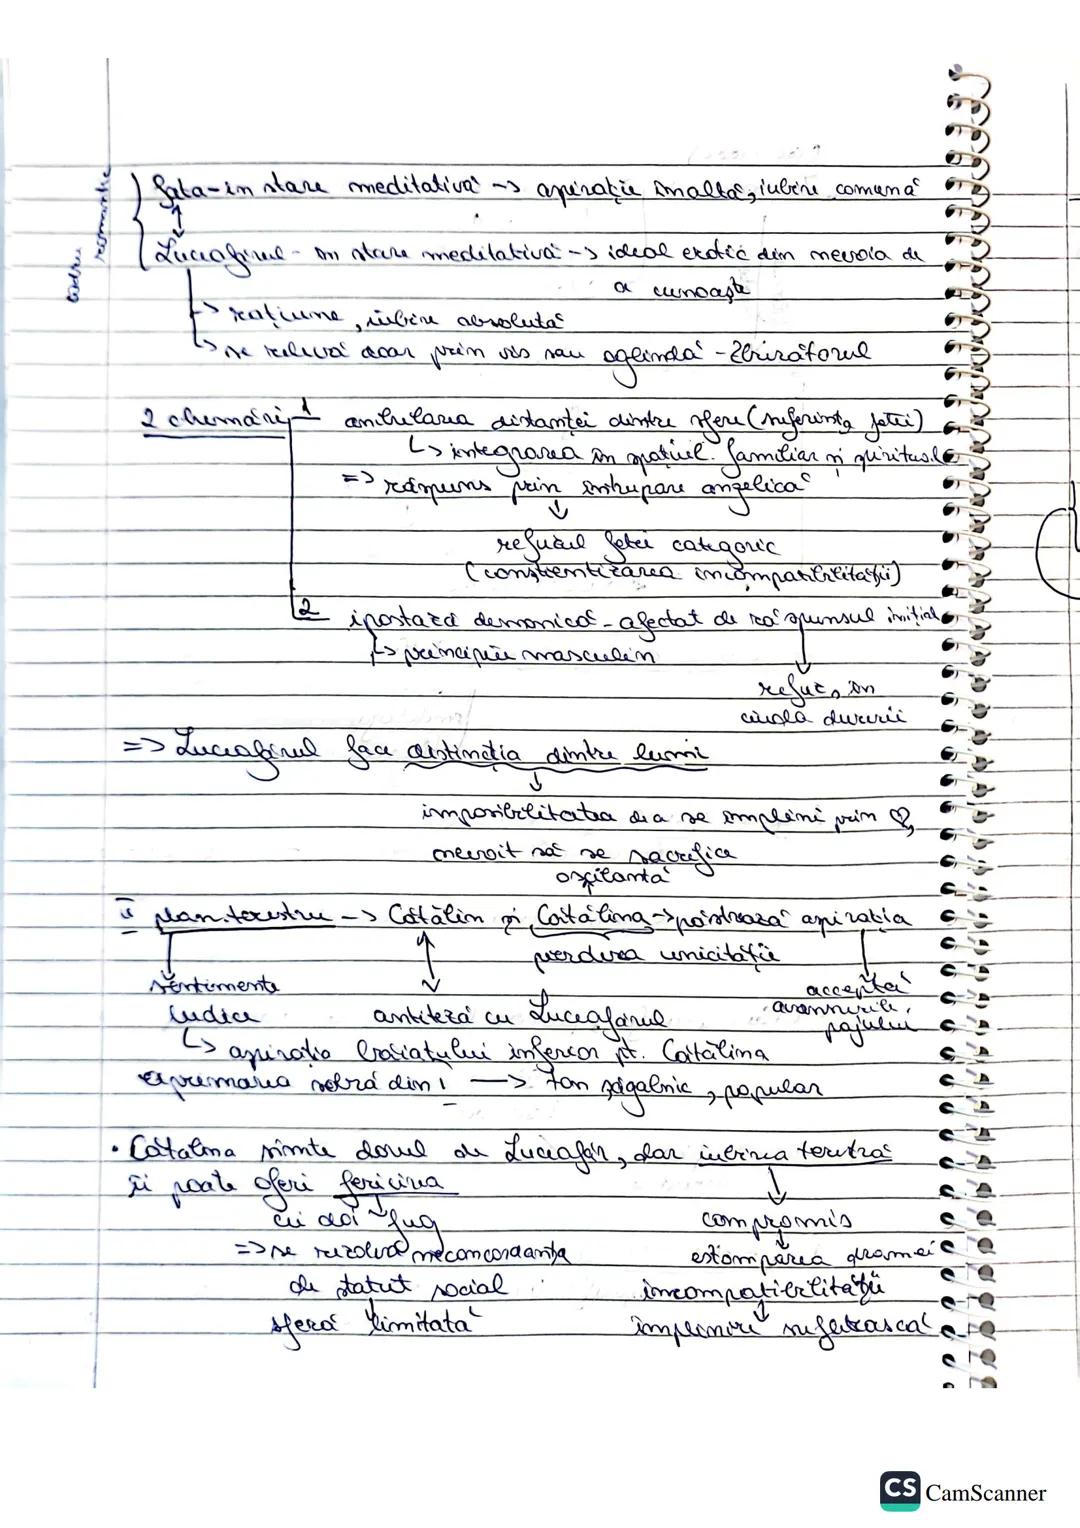 cadru romantic
Fata-în stare meditativă -> aspirație înaltă, iubire comună
Luceafărul - în stare meditativă -> ideal erotic din nevoia de
a cunoaște
-> rațiune, iubire absolută
-> se relevă doar prin vis sau oglindă - Zburătorul
2 chemări 1 anularea distanței dintre sfere (suferința fetei)
-> integrarea în spațiul familiar și spiritual
=> răspuns prin întrupare angelică
refuzul fetei categoric
(conștientizarea incompatibilității)
2 ipostază demonică - afectat de răspunsul inițial
-> principiu masculin
refuz, în
ciuda durerii
=> Luceafărul face distincția dintre lumi
imposibilitatea de a se împlini prin
nevoit să se sacrifice
oscilantă
II plan terestru -> Cătălin și Cătălina -> păstrează aspirația
pierderea unicității
sentimente acceptă
ludice antiteză cu Luceafărul avansurile
pajului
-> aspirația băiatului inferior pt. Cătălina
exprimarea sobră din 1 -> ton șăgalnic, popular
• Cătălina simte dorul de Luceafăr, dar iubirea terestră
îi poate oferi fericirea
cei doi fug compromis
=> se rezolvă neconcordanța estomparea dramei
de statut social incompatibilității
sferă limitată împlinire sufletească
CS CamScanner